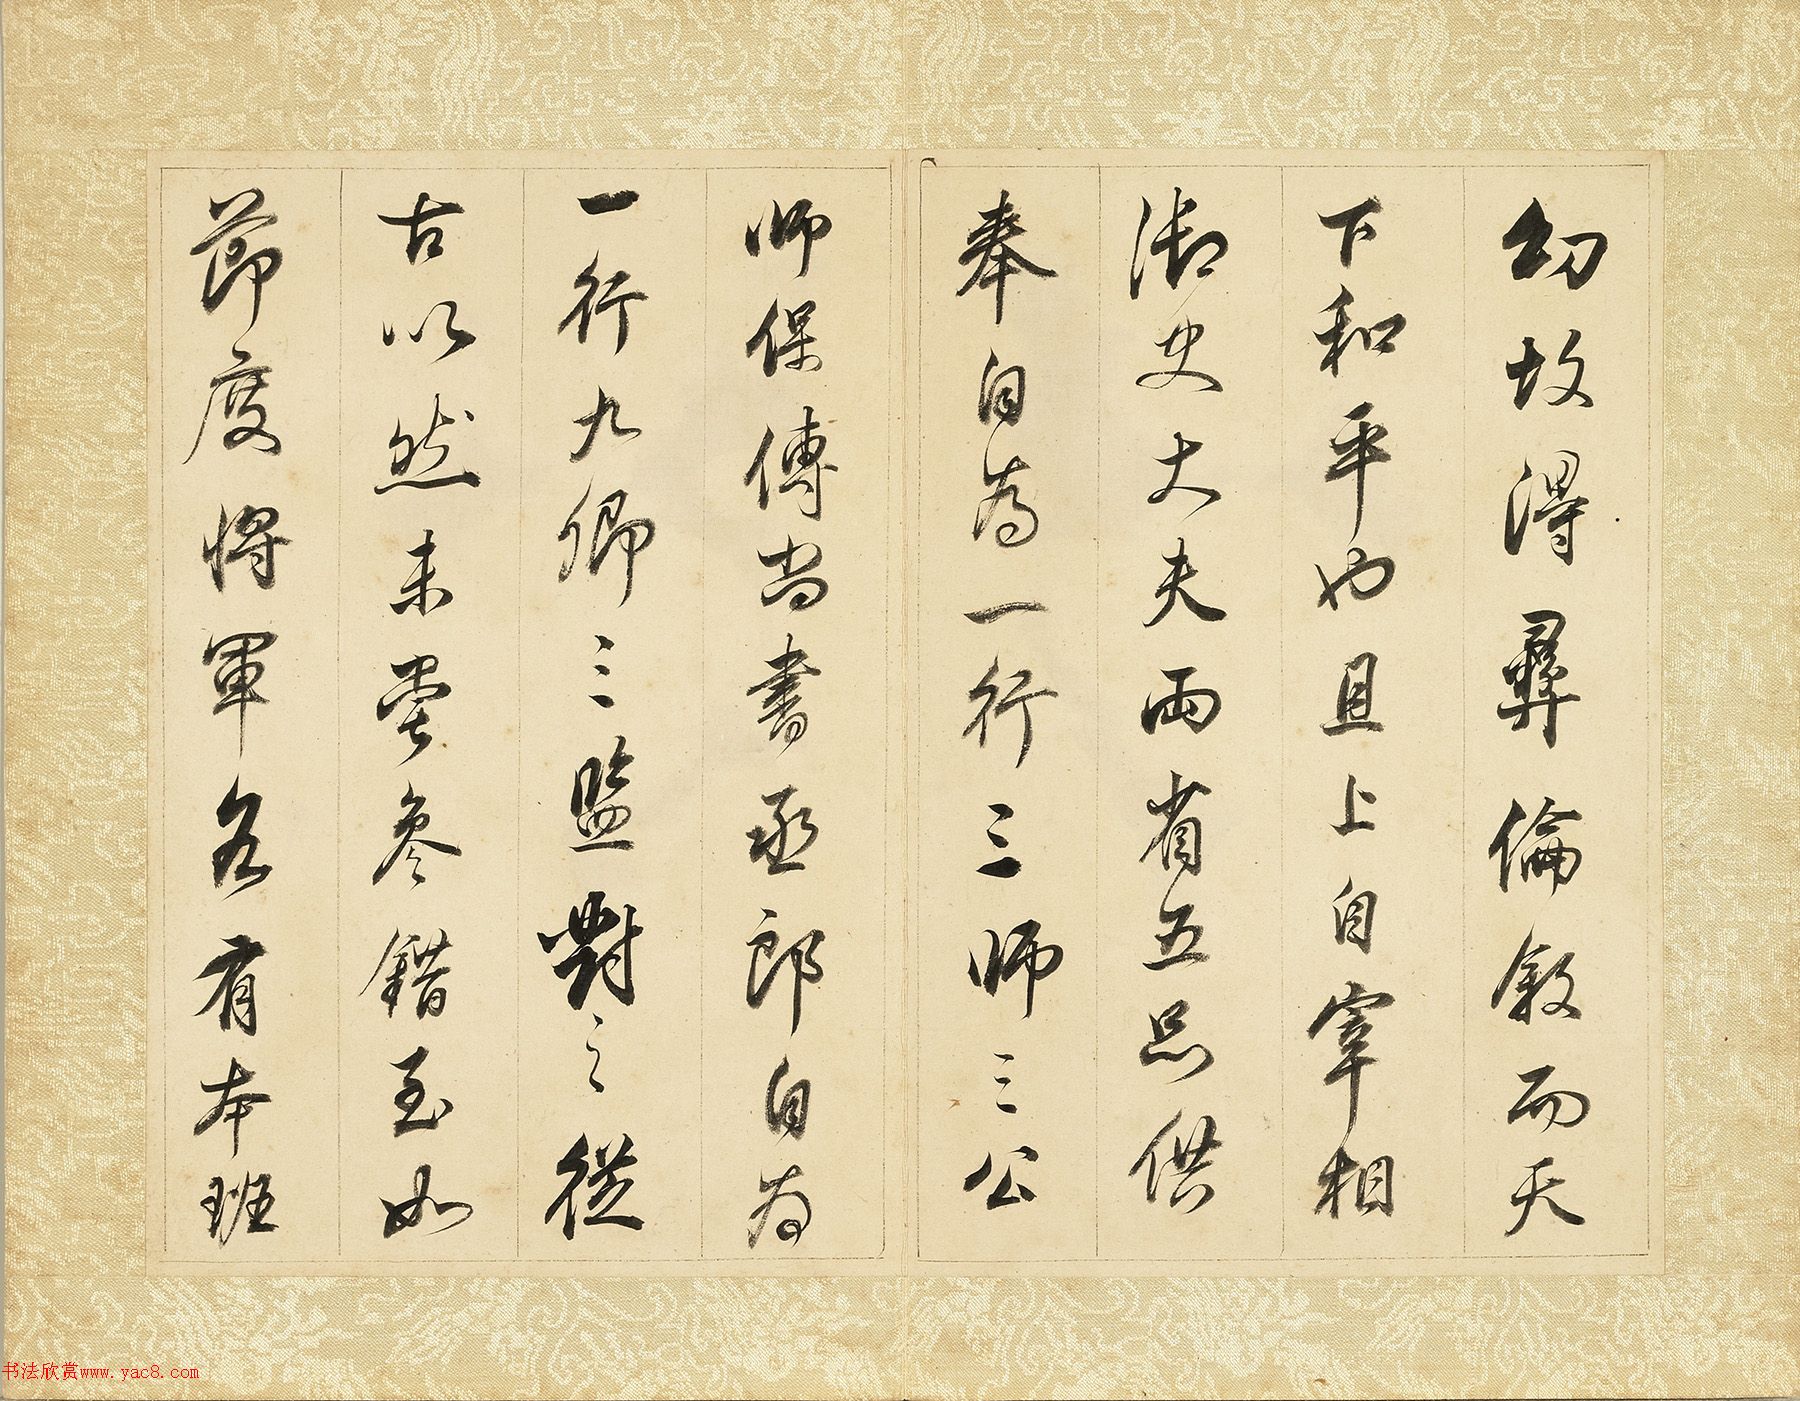 幼故得彞倫敘而天
下和平也且上自宰相
御史大夫兩省五品供
奉自為一行三師三公
師保傅尚書丞郎自為
一行九卿三監對之從
古以然未嘗參錯至如
節度將軍各有本班
书法欣赏www.yac8.com